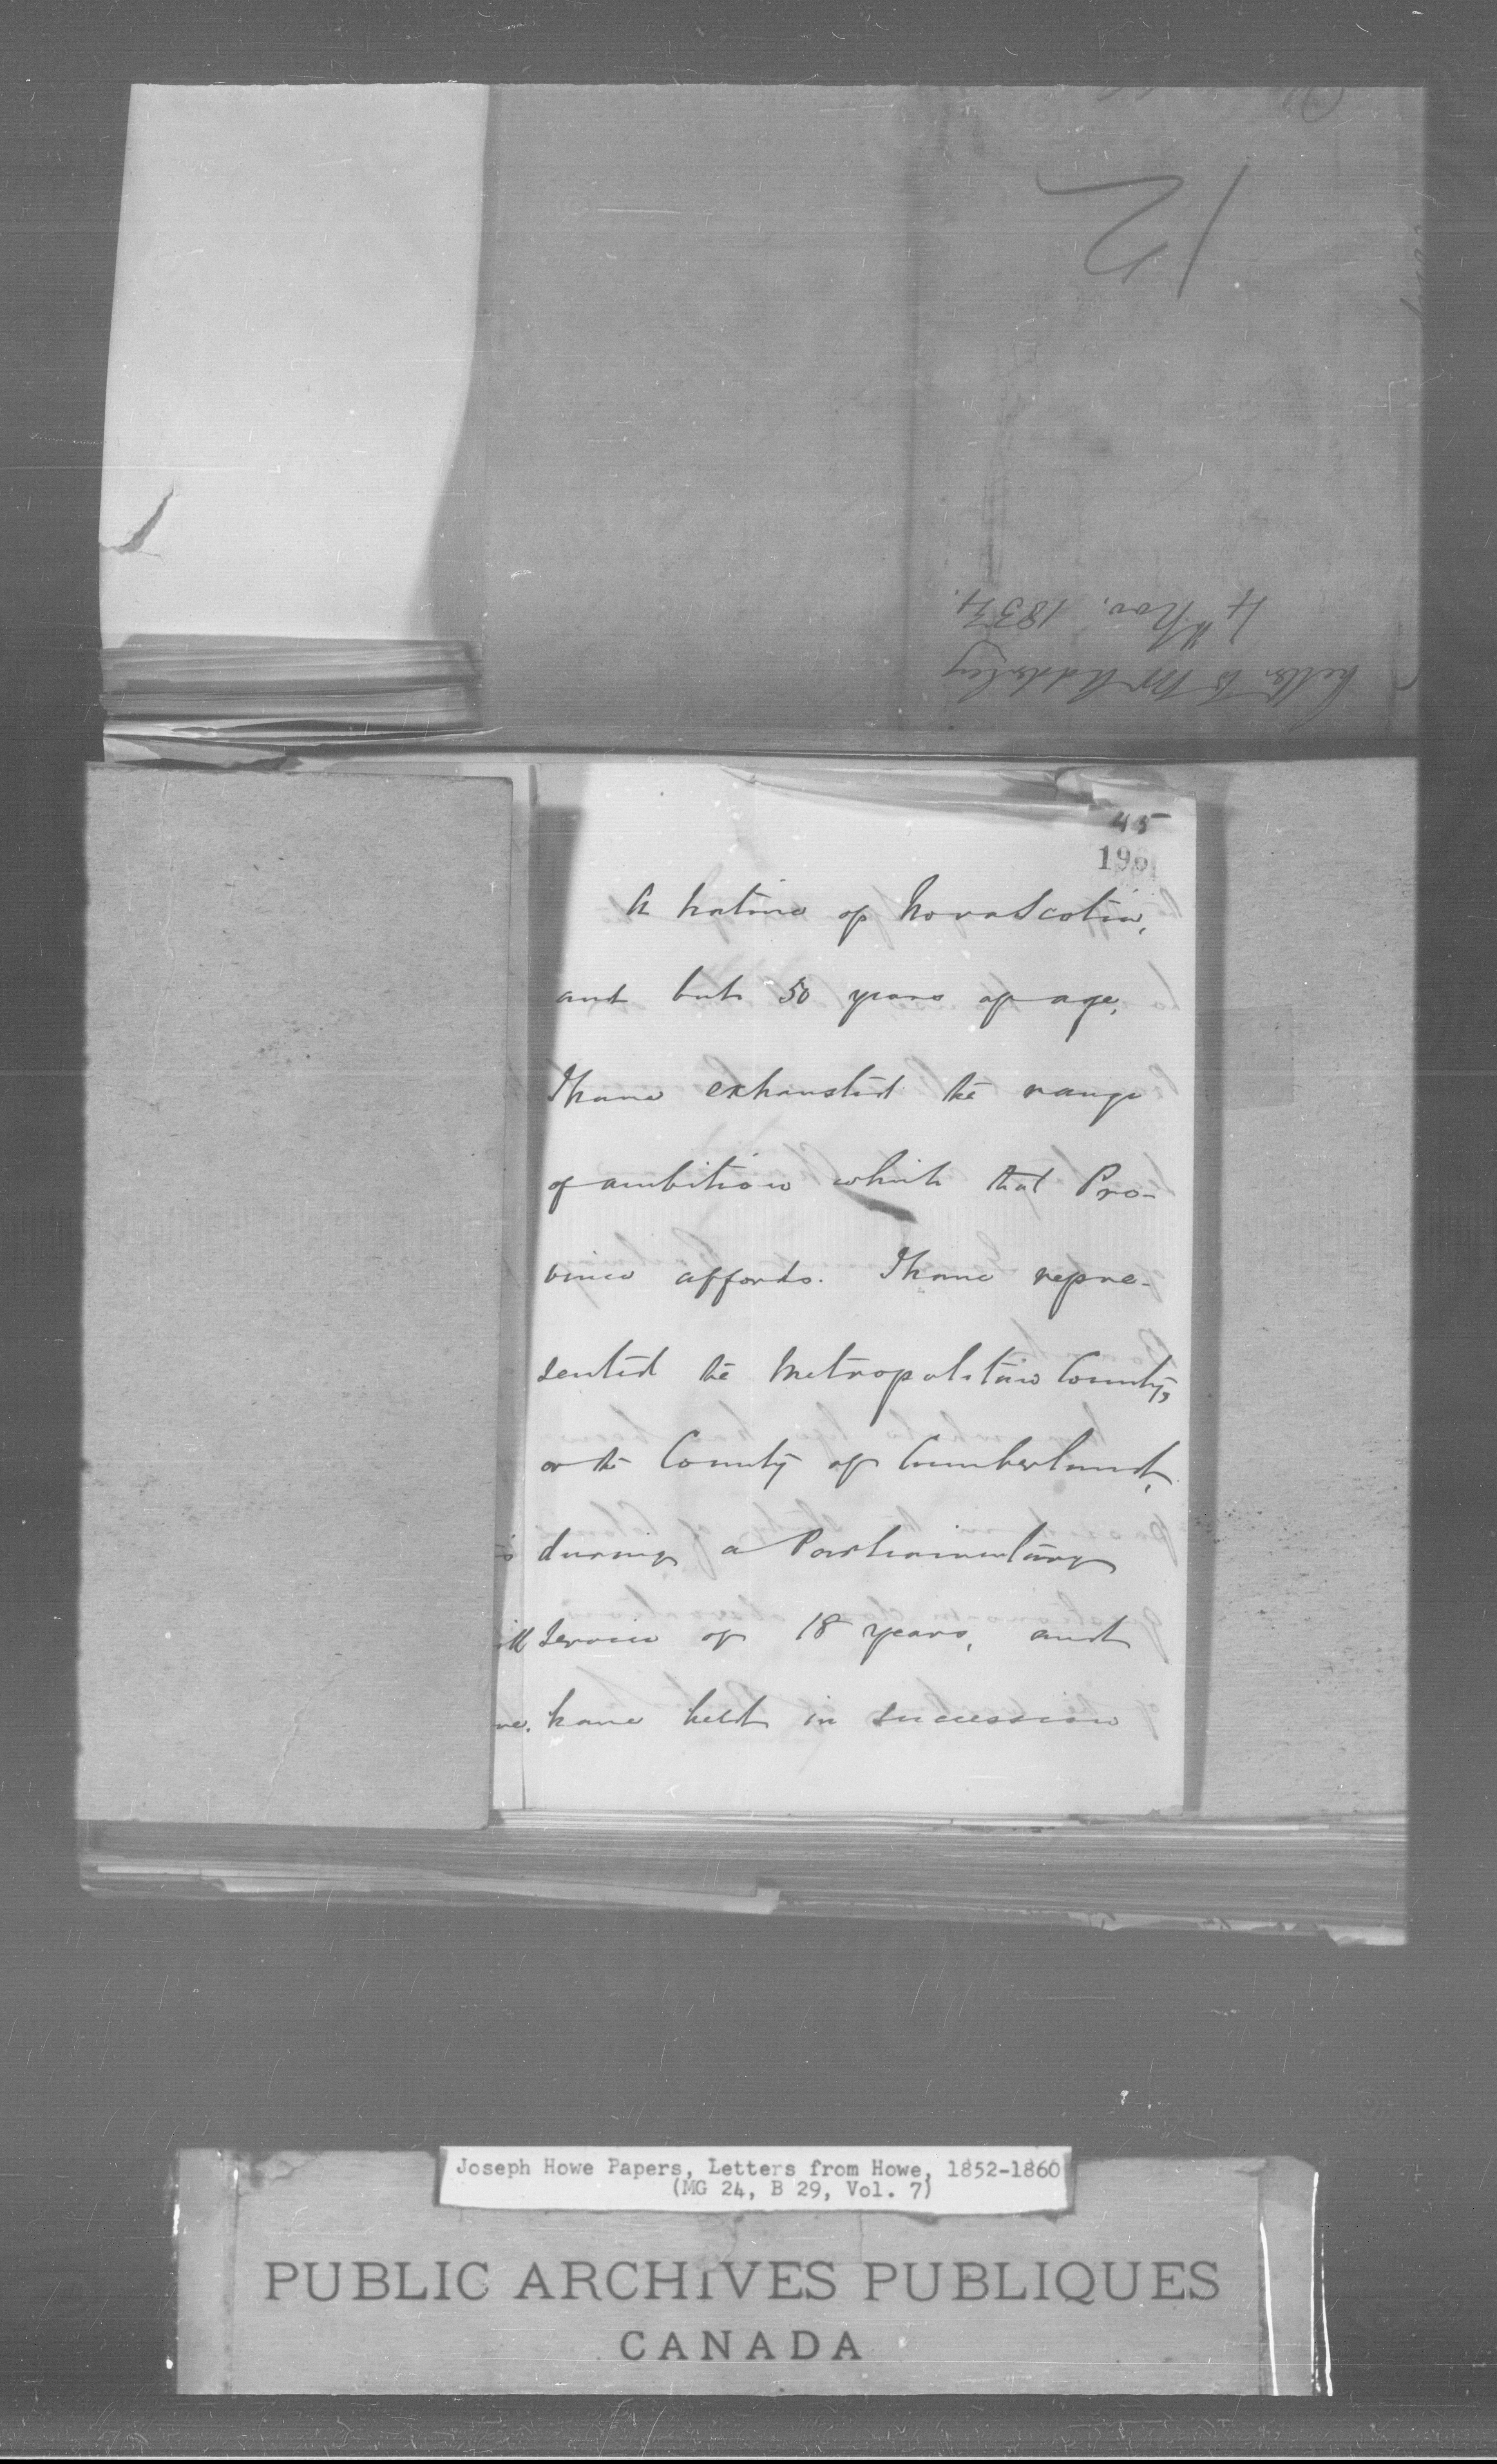 12
Letter to Mr Adderley
4th Nov. 1854.
45
196
A native of Nova Scotia,
and but 50 years of age,
I have exhausted the range
of ambition which that Pro-
vince affords. I have repre-
sented the Metropolitan County,
or the County of Cumberland,
during a Parliamentary
Service of 18 years, and
have held in succession
Joseph Howe Papers, Letters from Howe, 1852-1860
(MG 24, B 29, Vol. 7)
PUBLIC ARCHIVES PUBLIQUES
CANADA